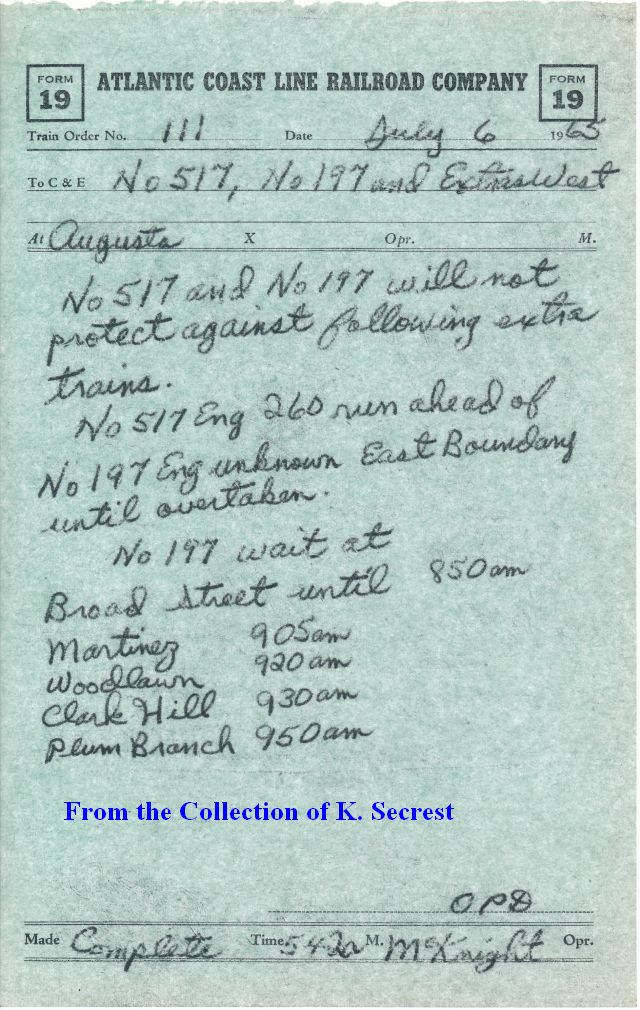 FORM 19 ATLANTIC COAST LINE RAILROAD COMPANY FORM 19
Train Order No. 111 Date July 6 1965
To C & E No 517, No 197 and Extras West
At Augusta X Opr. M.
No 517 and No 197 will not
protect against following extra
trains.
No 517 Eng 260 run ahead of
No 197 Eng unknown East Boundary
until overtaken.
No 197 wait at
Broad Street until 850am
Martinez 905am
Woodlawn 920am
Clark Hill 930am
Plum Branch 950am
From the Collection of K. Secrest
OPD
Made Complete Time 542a M. McKnight Opr.